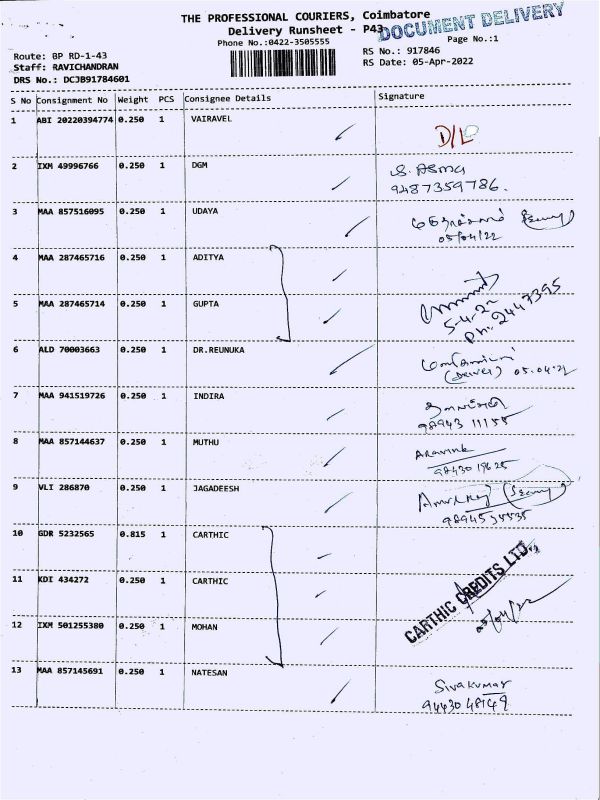 THE PROFESSIONAL COURIERS, Coimbatore
DOCUMENT DELIVERY
Delivery Runsheet - P43
Phone No.:0422-3505555
Page No.:1
Route: BP RD-1-43
RS No.: 917846
Staff: RAVICHANDRAN
RS Date: 05-Apr-2022
DRS No.: DCJB91784601
S No Consignment No Weight PCS Consignee Details Signature
1 ABI 20220394774 0.250 1 VAIRAVEL
D/L
2 IXM 49996766 0.250 1 DGM
S. Asma
9487359786.
3 MAA 857516095 0.250 1 UDAYA
05/04/22
4 MAA 287465716 0.250 1 ADITYA
5 MAA 287465714 0.250 1 GUPTA
5-4-22
Ph: 2447395
6 ALD 70003663 0.250 1 DR.REUNUKA
(Driver) 05.04.22
7 MAA 941519726 0.250 1 INDIRA
98943 11155
8 MAA 857144637 0.250 1 MUTHU
Aravink
98430 19625
9 VLI 286870 0.250 1 JAGADEESH
9894535535
10 GDR 5232565 0.815 1 CARTHIC
11 KDI 434272 0.250 1 CARTHIC
CARTHIC CREDITS LTD.,
05/04/22
12 IXM 501255380 0.250 1 MOHAN
13 MAA 857145691 0.250 1 NATESAN
Sivakumar
9443048149